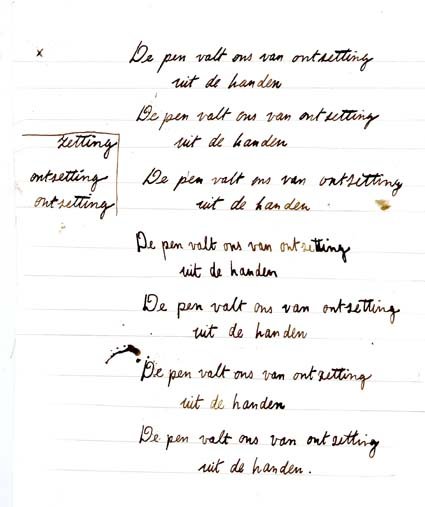 x
De pen valt ons van ontzetting
uit de handen
De pen valt ons van ontzetting
uit de handen
zetting
ontzetting
ontzetting
De pen valt ons van ontzetting
uit de handen
De pen valt ons van ontzetting
uit de handen
De pen valt ons van ontzetting
uit de handen
De pen valt ons van ontzetting
uit de handen
De pen valt ons van ontzetting
uit de handen.